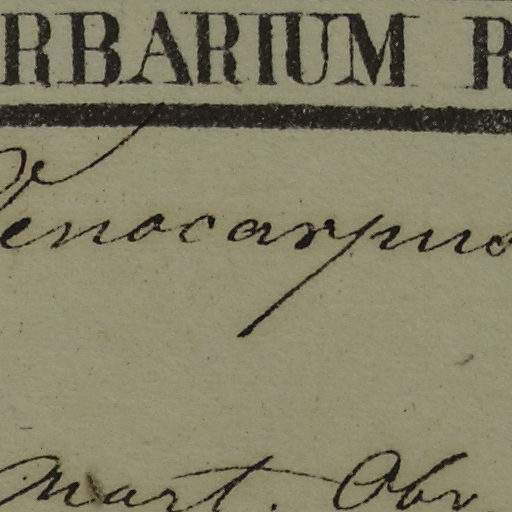 RBARIUM R
enocarpus
Mart. Obv.